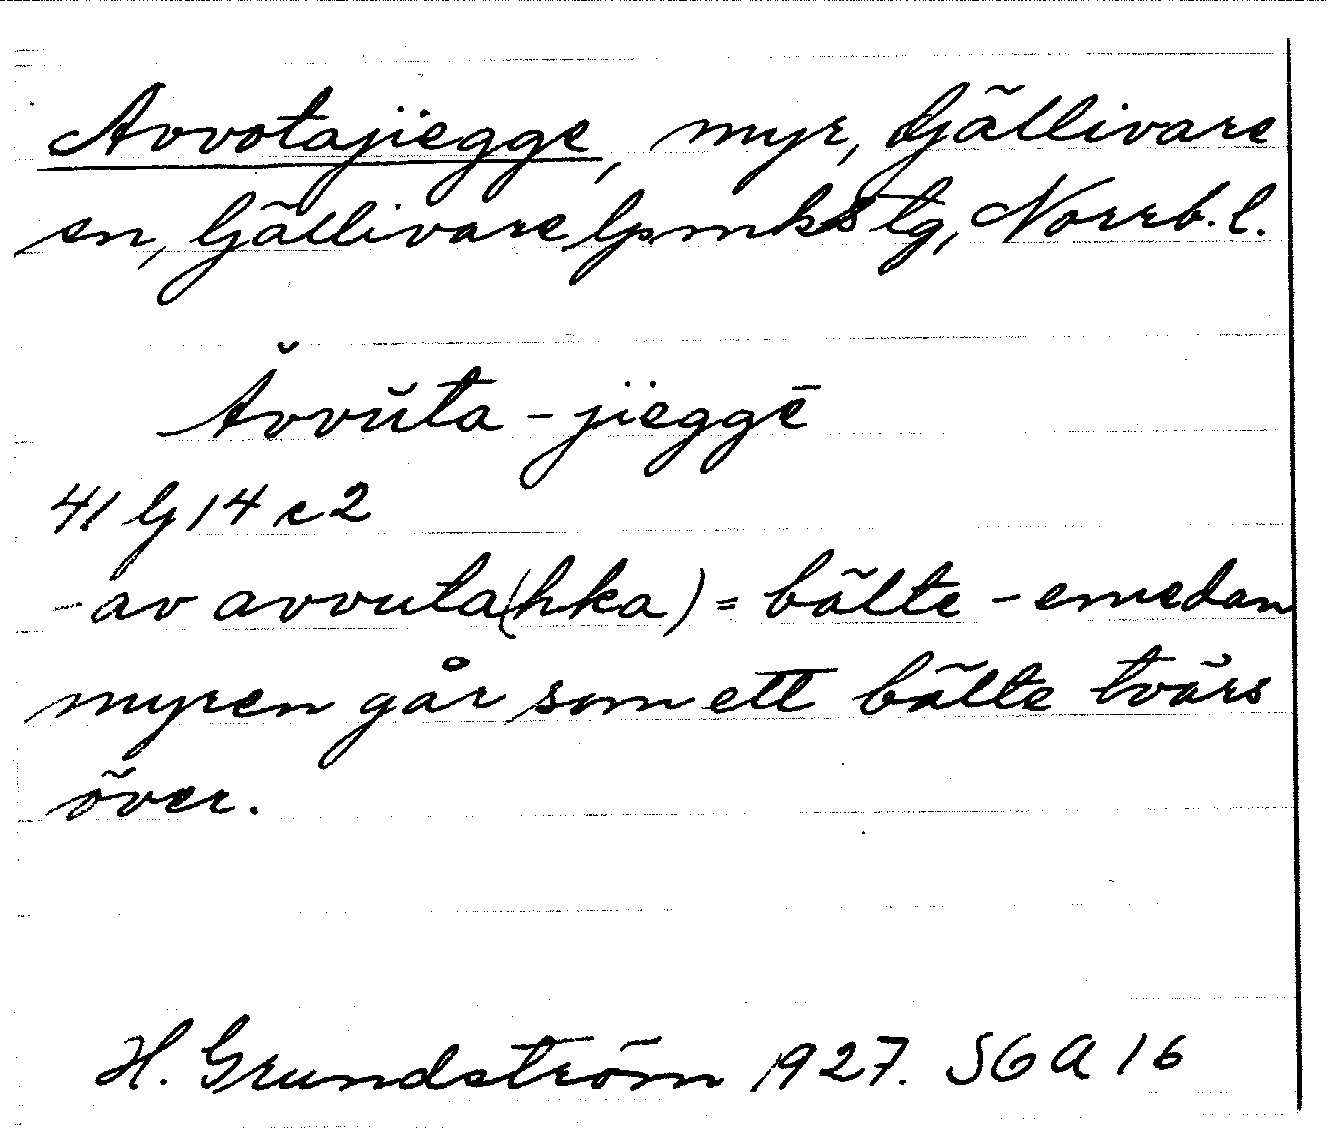 Avvotajiegge, myr, Gjällivare
sn, Gjällivare lpmks tg, Norrb. l.
Ǎvvŭta - jieggē
41 G 14 c 2
- av avvuta(hka) = bälte - emedan
myren går som ett bälte tvärs
över.
H. Grundström 1927. SGA 16